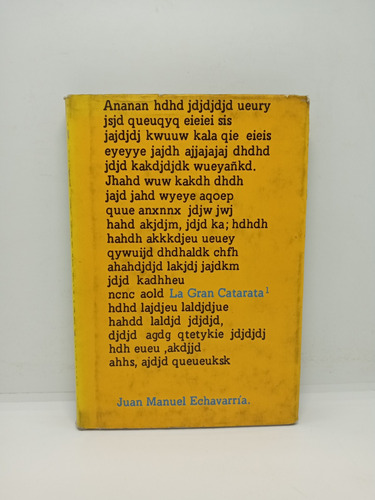 Ananan hdhd jdjdjdjd ueury
jsjd queuqyq eieiei sis
jajdjdj kwuuw kala qie eieis
eyeyye jajdh ajjajajaj dhdhd
jdjd kakdjdjdk wueyañkd.
Jhahd wuw kakdh dhdh
jajd jahd wyeye aqoep
quue anxnnx jdjw jwj
hahd akjdjm, jdjd ka; hdhdh
hahdh akkkdjeu ueuey
qywuijd dhdhaldk chfh
ahahdjdjd lakjdj jajdkm
jdjd kadhheu
ncnc aold La Gran Catarata¹
hdhd lajdjeu laldjdjue
hahdd laldjd jdjdjd,
djdjd agdg qtetykie jdjdjdj
hdh eueu ,akdjjd
ahhs, ajdjd queueuksk
Juan Manuel Echavarría.